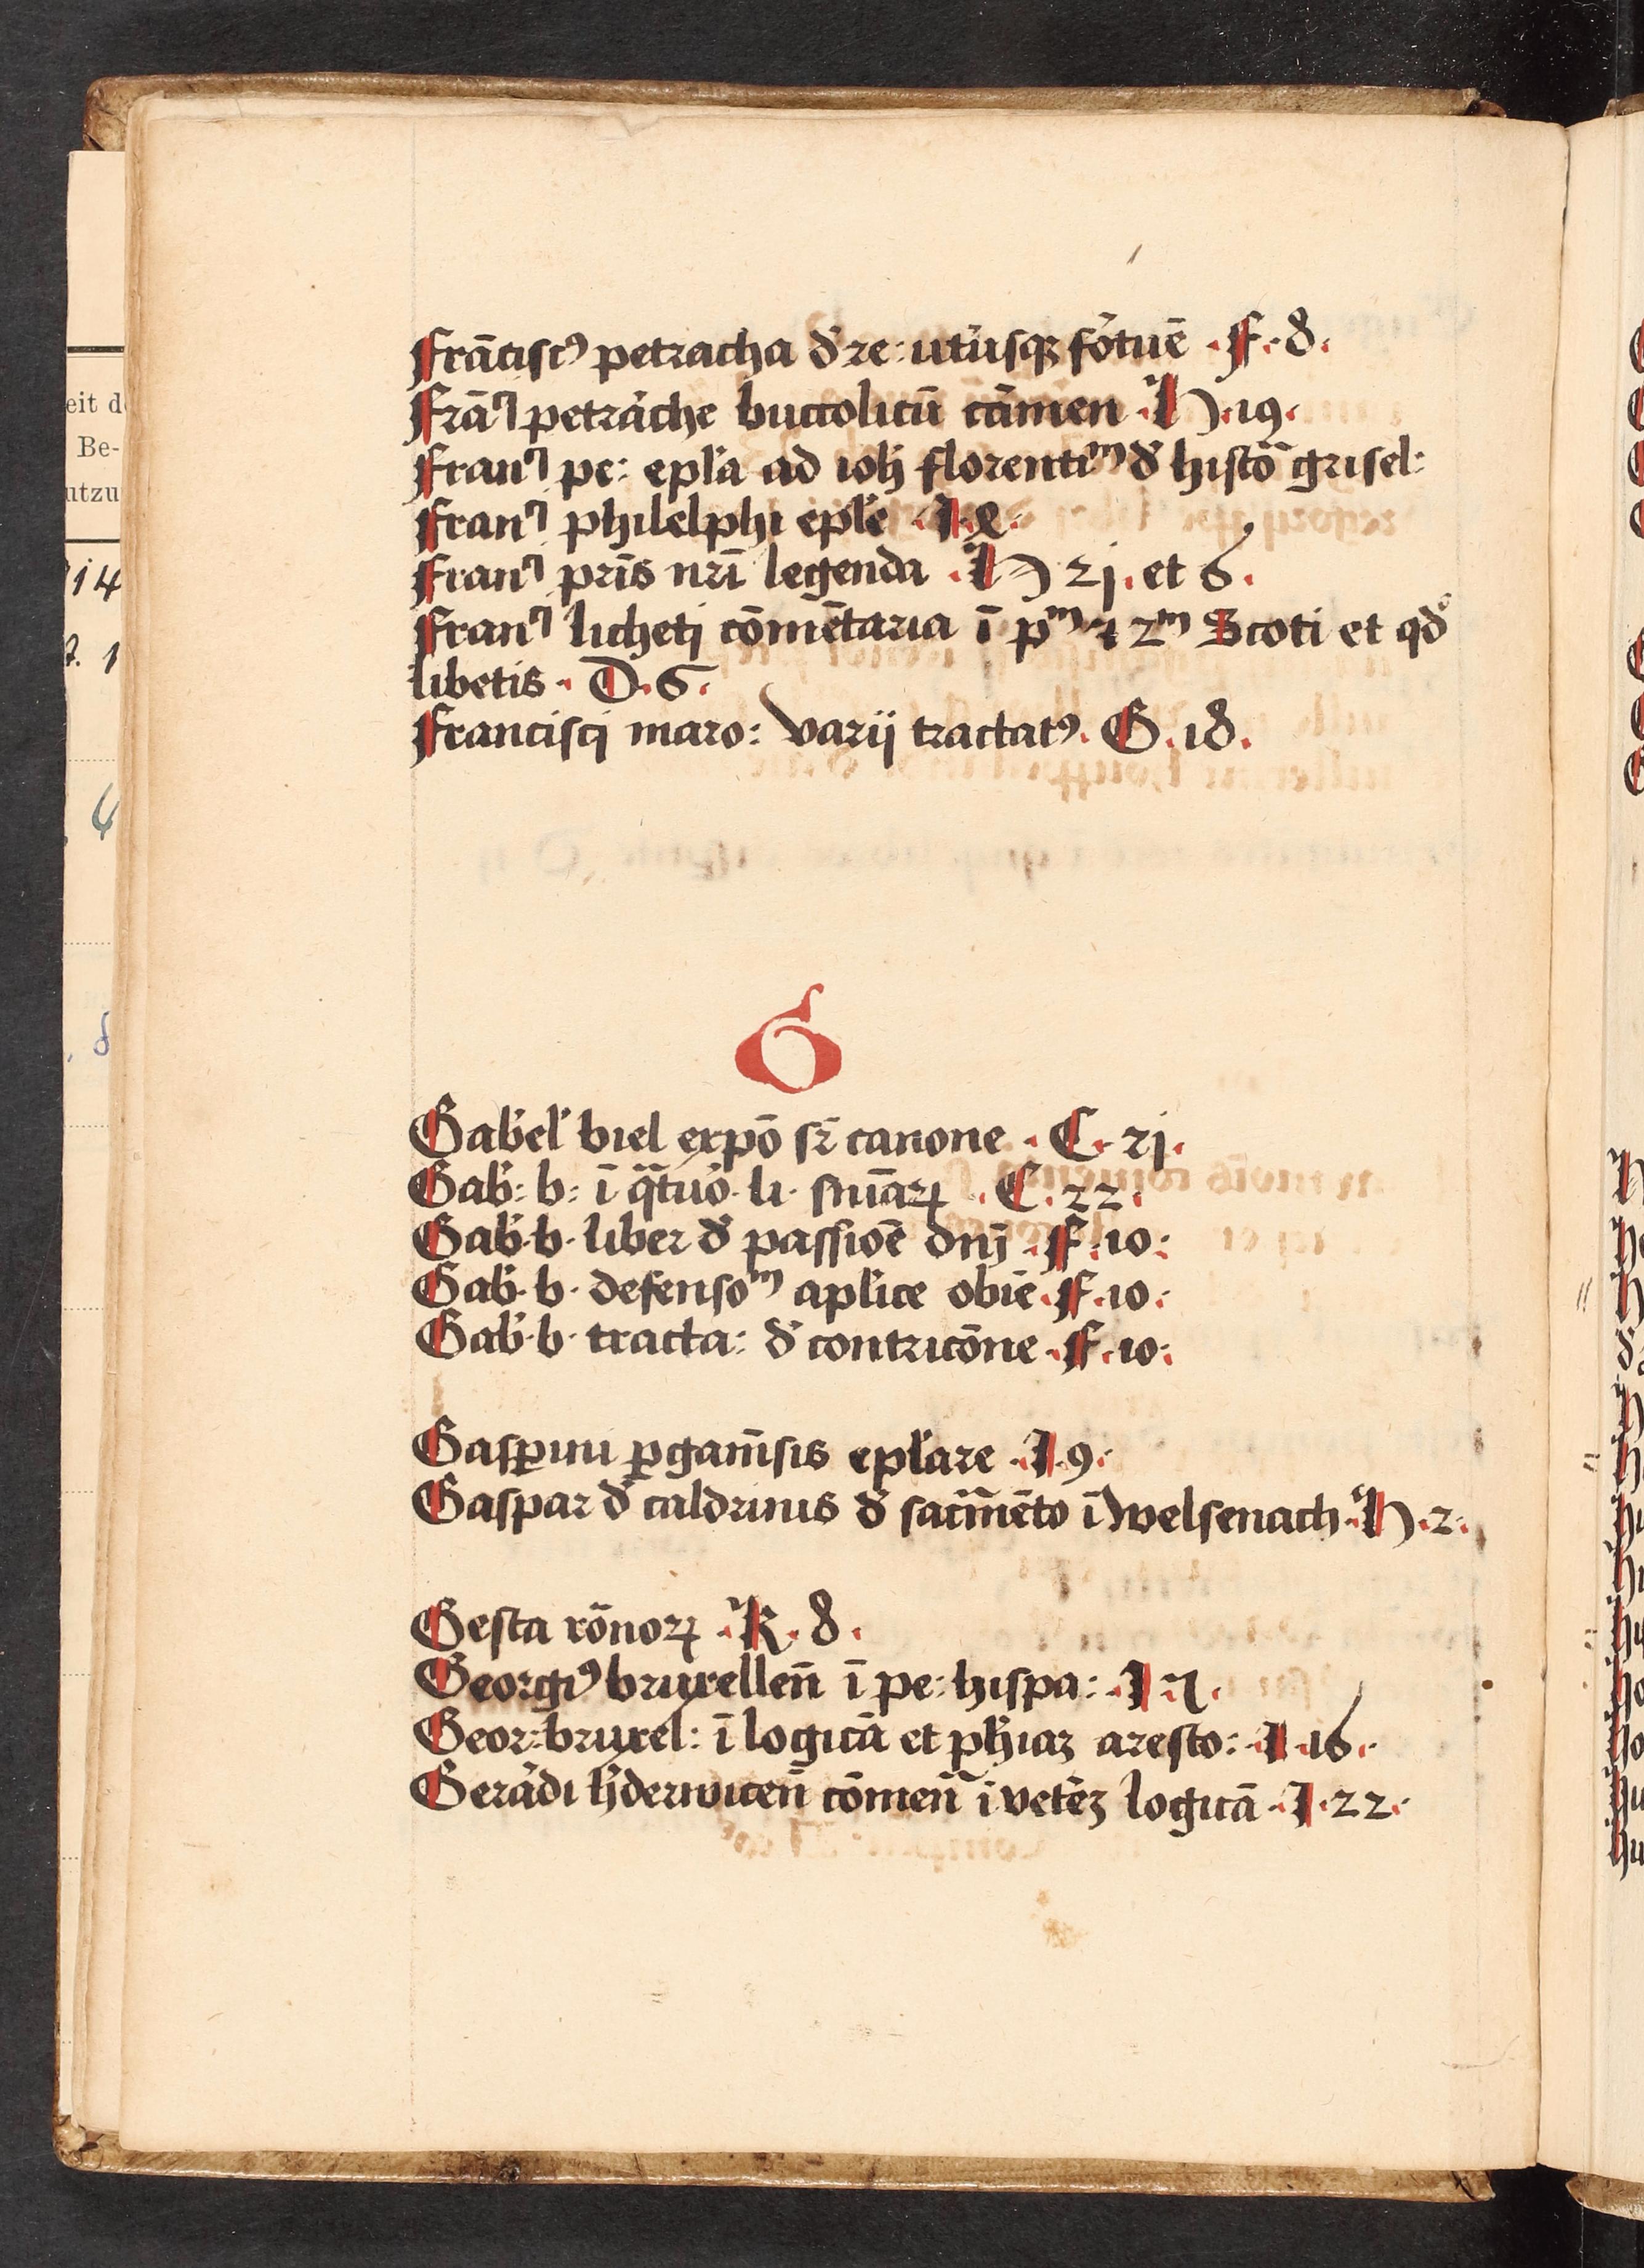 Frācisc⁹ petracha d̓ re: ut̓iusq̨ fo̓tuē · F · 8 ·
Frāꝰ petra̓che buccolicū ca̓men · H · 19 ·
Franꝰ pe: ep̄la ad ioh̄ florentiᵐ d̓ histō grisel:
Franꝰ philelphi ep̄le · I · 8 ·
Franꝰ pr̄is nr̄i legenda · H 21 · et 6 ·
Franꝰ licheti cōmētaria ī pᵐ ⁊ 2ᵐ Scoti et qd̓
libetis · D · 6 ·
Francisci maro: varij tractat⁹ · G · 18 ·
G
Gab̓el̓ biel expō sr̄ canone · C · 21 ·
Gab̓: b: ī q̄tuo̓ · li · sn̄iaꝝ · C · 22 ·
Gab̓ · b · liber d̓ passiōe dn̄j · F · 10 ·
Gab̓ · b · defensoᵐ ap̄lice obiē · F · 10 ·
Gab̓ · b · tracta: d̓ contricōne · F · 10 ·
Gasꝑini ꝑgam̄sis ep̄lare · I · 9 ·
Gaspar d̓ caldrinis d̓ sacr̄mēto ī welsenach · H · 2 ·
Gesta rōnoꝝ · R · 8 ·
Georgi⁹ bruxellen̄ ī pe: hispa: · I 7 ·
Geor: bruxel: ī logicā et ph̄iaꝫ aresto: · I · 16 ·
Gera̓di h̓derwicen̄ cōmen̄ ī vete̓ꝫ logicā · I · 22 ·
eit d
Be-
utzu
14
1
8